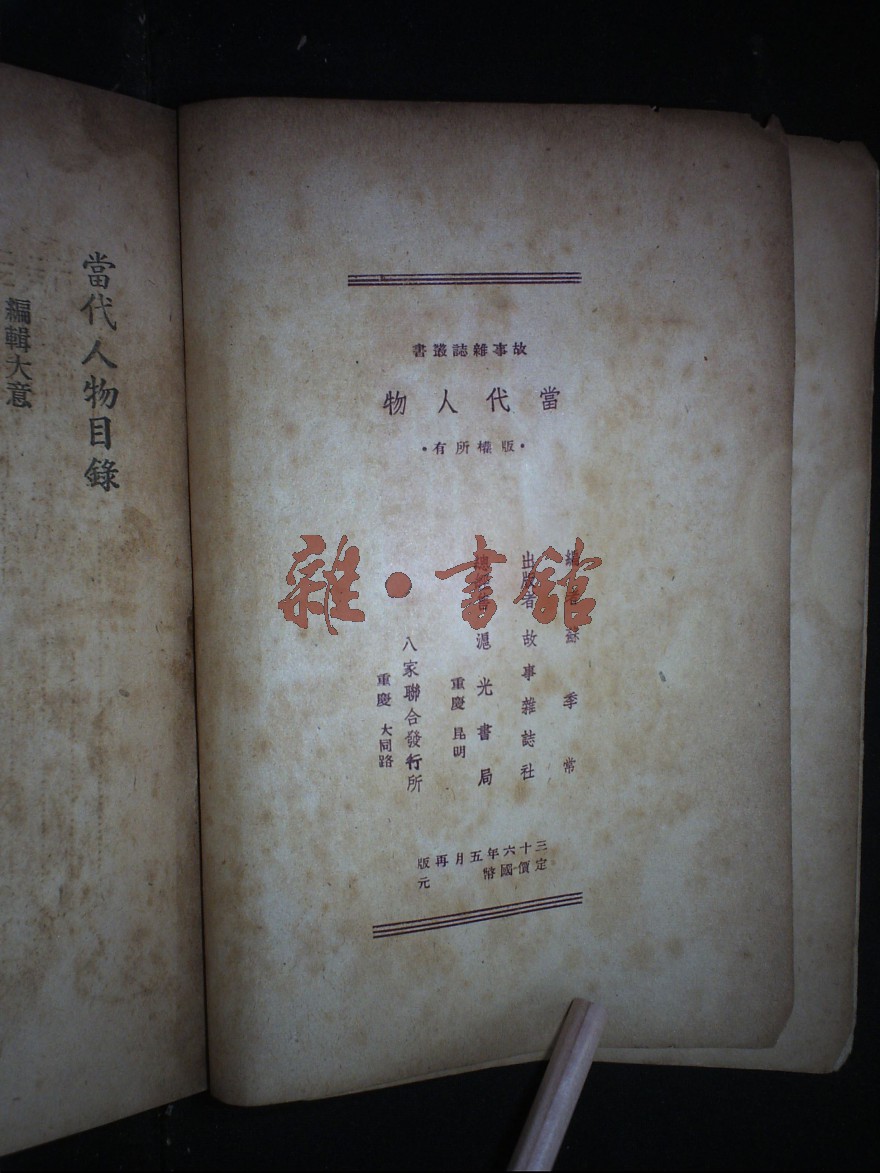 故事雜誌叢書
當代人物
•版權所有•
編著者 蘇季常
出版者 故事雜誌社
總經售 滬光書局
重慶 昆明
八家聯合發行所
重慶 大同路
三十六年五月再版
定價國幣 元
雜•書館
當代人物目錄
編輯大意